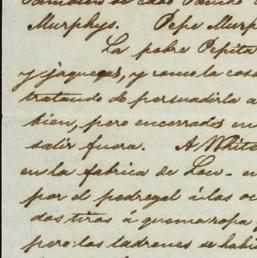 Murphys. Pepe Murp
La pobre Pepita
y jaquecas, y como la cosa
tratando de persuadirla a
bien, pero encerrados en
salir fuera. A White
en la fabrica de Low - en
por el pedregal á las oc
dos tiros á quema ropa y
pero los ladrones se habi